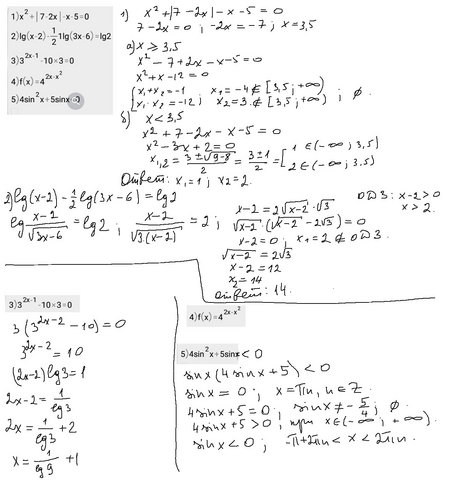 1)x²+|7-2x|-x-5=0
2)lg(x-2)-½1lg(3x-6)=lg2
3)3^{2x-1}-10×3=0
4)f(x)=4^{2x-x²}
5)4sin²x+5sinx<0
1) x²+|7-2x|-x-5=0
7-2x=0; -2x=-7; x=3,5
а) x ⩾ 3,5
x²-7+2x-x-5=0
x²+x-12=0
{x₁+x₂=-1 x₁=-4∉[3,5;+∞)
x₁·x₂=-12, x₂=3∉[3,5;+∞) ; ∅.
б) x<3,5
x²+7-2x-x-5=0
x²-3x+2=0
x₁,₂=(3±√(9-8))/2=(3±1)/2=[1∈(-∞;3,5)
2∈(-∞;3,5)
Ответ: x₁=1; x₂=2.
2) lg(x-2)-½lg(3x-6)=lg2
lg (x-2)/√(3x-6)=lg2; (x-2)/√(3(x-2))=2;
x-2=2√(x-2)·√3 ОДЗ: x-2>0
x>2.
√(x-2)·(√(x-2)-2√3)=0
x-2=0; x₁=2∉ОДЗ.
√(x-2)=2√3
x-2=12
x₂=14
Ответ: 14.
3)3^{2x-1}-10×3=0
3(3^{2x-2}-10)=0
3^{2x-2}=10
(2x-2)lg3=1
2x-2=1/lg3
2x=1/lg3+2
x=1/lg9+1
4)f(x)=4^{2x-x²}
5)4sin²x+5sinx<0
sinx(4sinx+5)<0
sinx=0; x=πn, n∈Z.
4sinx+5=0; sinx≠-5/4; ∅.
4sinx+5>0; при x∈(-∞;+∞).
sinx<0; -π+2πn<x<2πn.